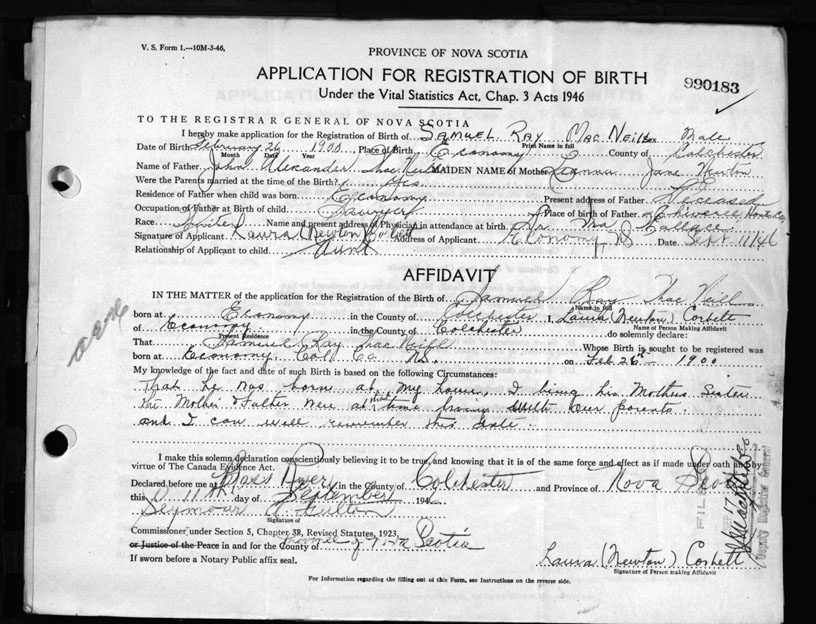 V. S. Form 1.—10M-3-46,
PROVINCE OF NOVA SCOTIA
APPLICATION FOR REGISTRATION OF BIRTH
990183
Under the Vital Statistics Act, Chap. 3 Acts 1946
TO THE REGISTRAR GENERAL OF NOVA SCOTIA
I hereby make application for the Registration of Birth of SAMUEL RAY MACNEILL Sex Male
Print Name in full
Date of Birth February 26 1900 Place of Birth Economy County of Colchester
Month Date Year
Name of Father John Alexander MacNeill MAIDEN NAME of Mother Jane Newton
Were the Parents married at the time of the Birth? Yes
Residence of Father when child was born Economy Present address of Father Deceased
Occupation of Father at Birth of child Sawyer Place of Birth of Father
Race Name and present address of Physician in attendance at birth Wallace
Signature of Applicant Laura (Newton) Corbett Address of Applicant Economy, NS Date Sept 11/46
Relationship of Applicant to child Aunt
AFFIDAVIT
IN THE MATTER of the application for the Registration of the Birth of Samuel Ray MacNeill
Name in full
born at Economy in the County of Colchester I, Laura (Newton) Corbett
Name of Person Making Affidavit
of Economy in the County of Colchester do solemnly declare:
Present Residence
That Samuel Ray MacNeill Whose Birth is sought to be registered was
born at Economy, Col. Co. NS. on Feb 26th - 1900
My knowledge of the fact and date of such Birth is based on the following Circumstances:
That he was born at my home, I being his Mothers Sister
Mother & Father were at that time living with our parents.
and I can well remember this date.
I make this solemn declaration conscientiously believing it to be true, and knowing that it is of the same force and effect as if made under oath and by
virtue of The Canada Evidence Act.
Declared before me at Bass River in the County of Colchester and Province of Nova Scotia
this 11th day of September 1946
Seymour A. Fulton
Signature of
Commissioner under Section 5, Chapter 38, Revised Statutes, 1923,
or Justice of the Peace in and for the County of Province of Nova Scotia
If sworn before a Notary Public affix seal.
Laura (Newton) Corbett
Signature of Person making Affidavit
For Information regarding the filling out of this Form, see Instructions on the reverse side.
FILED
Deputy Registrar General